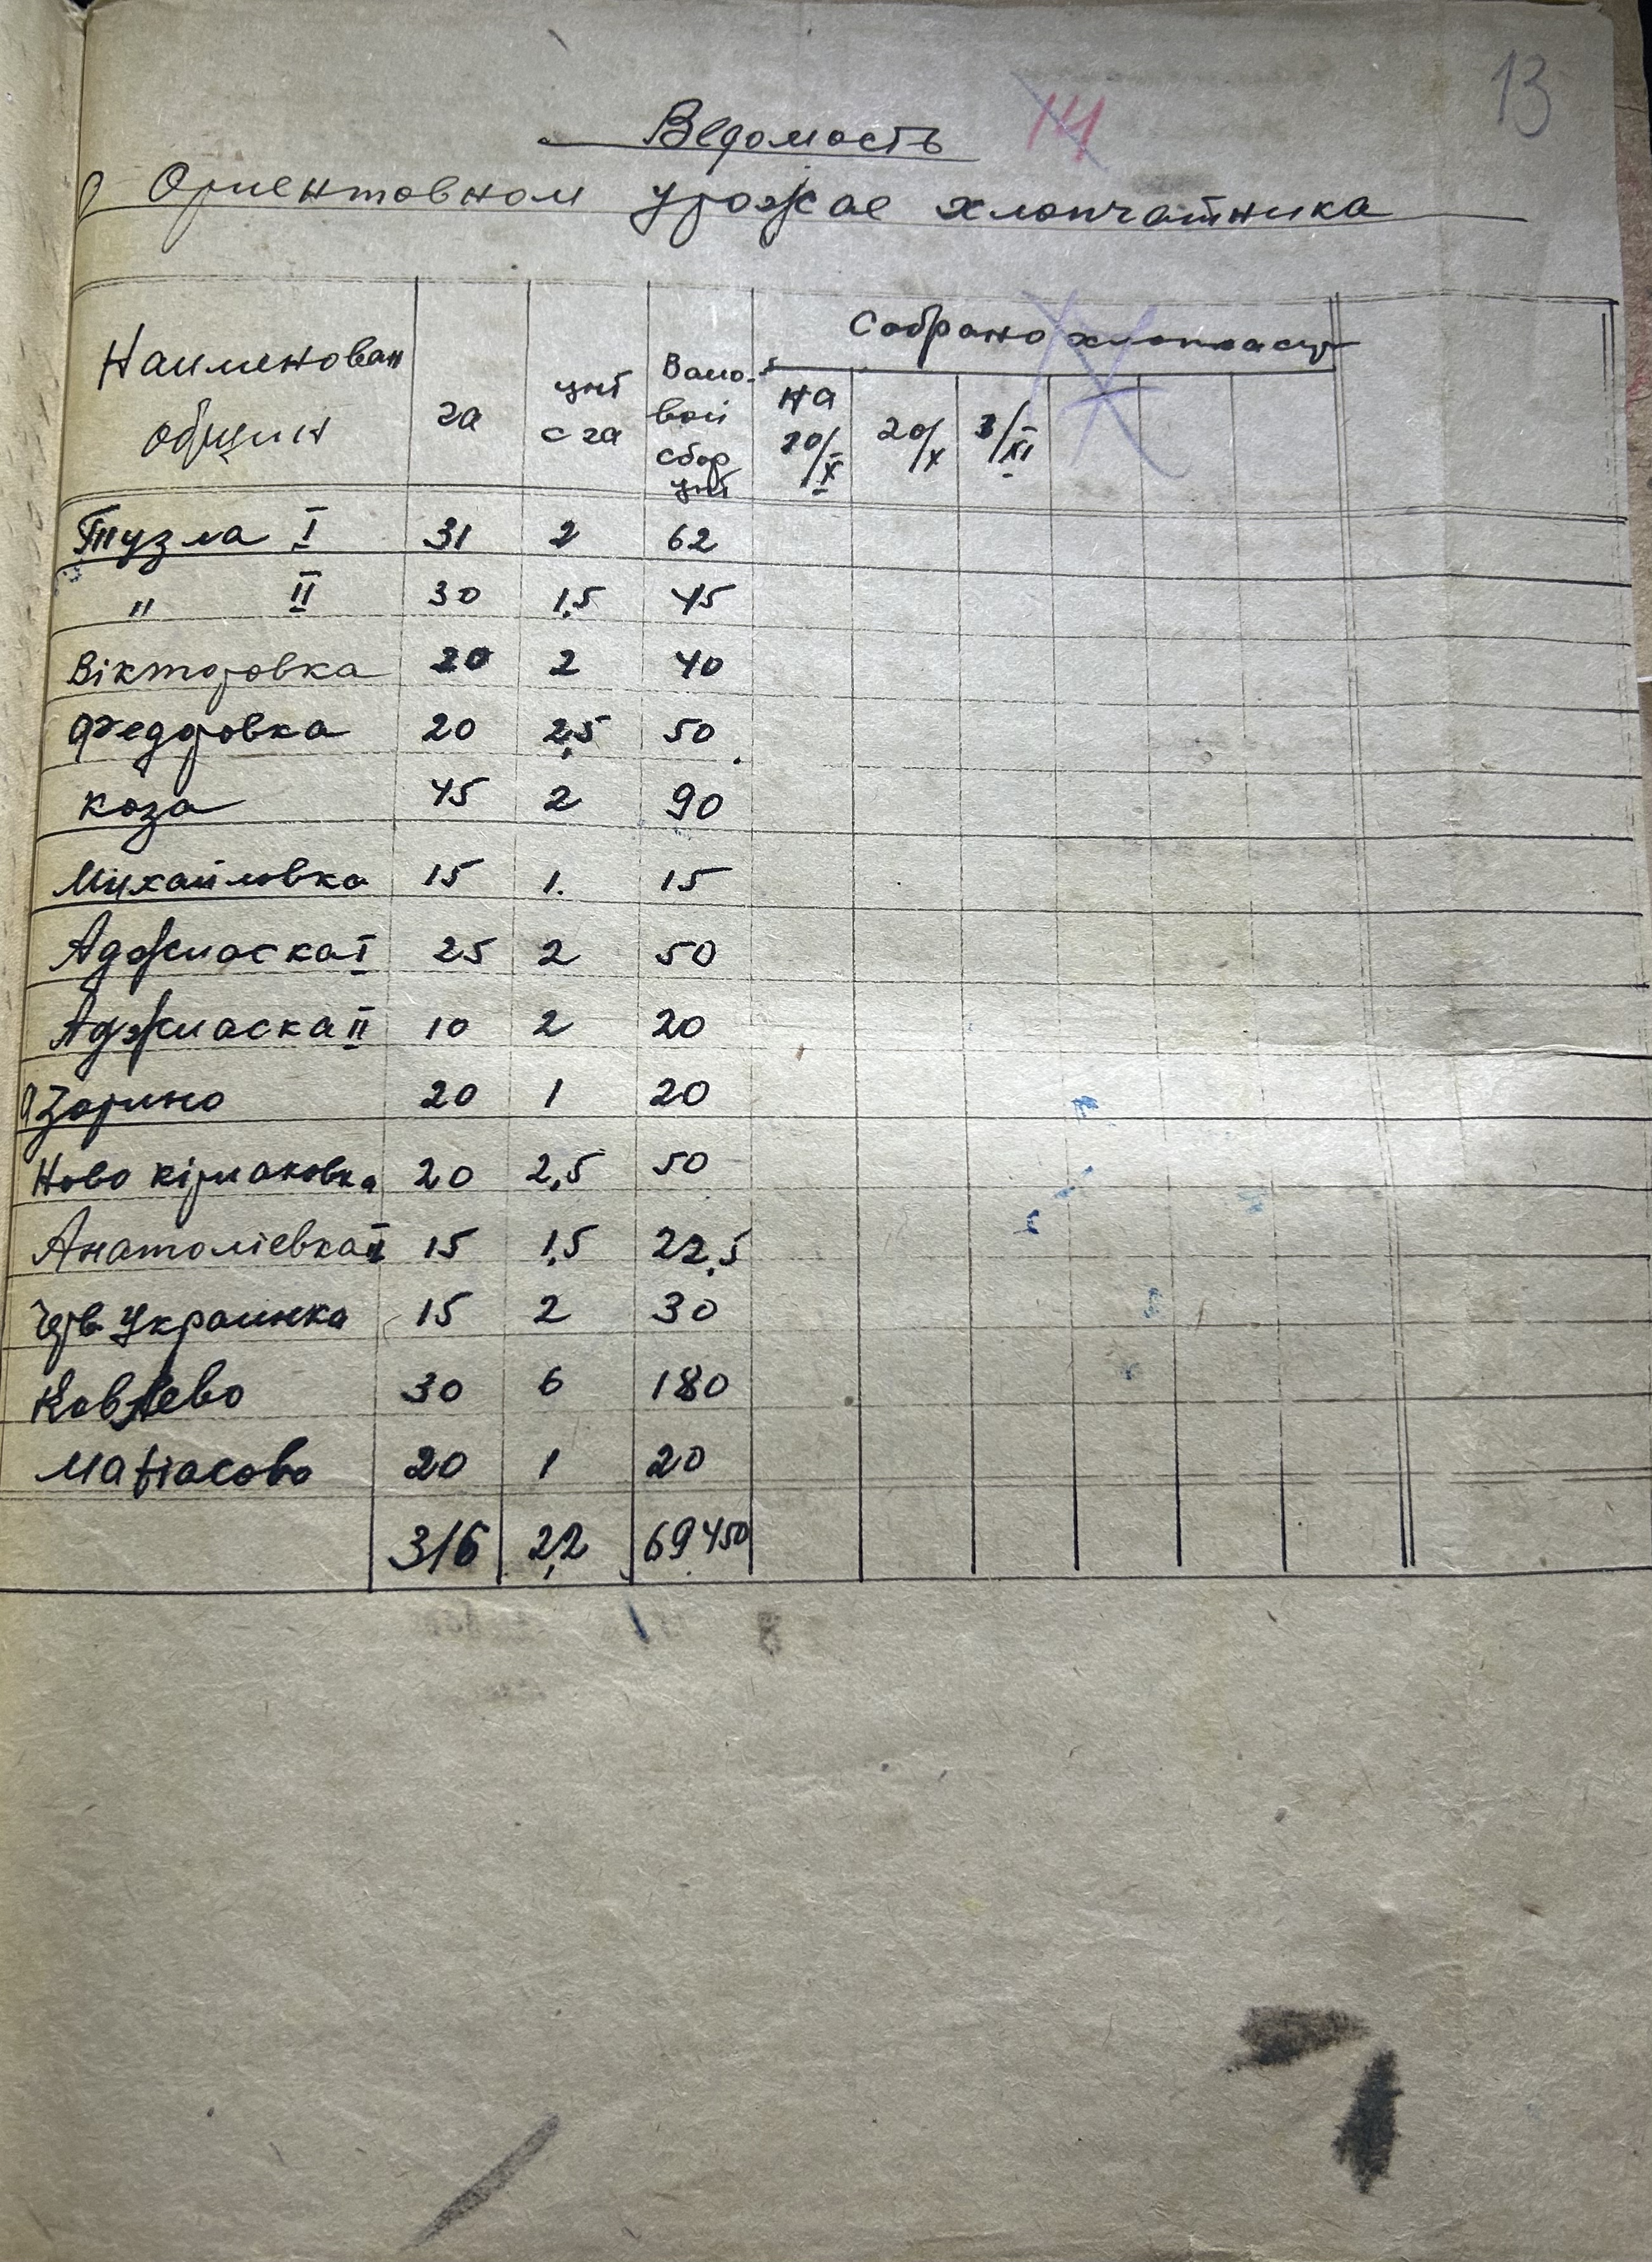 13
14
Ведомость
о Ориентовном урожае хлопчатника
Наименован общин | га | цнт с га | Вало-вой сбор цнт | Собрано хлопка сырц
на 10/X | 20/X | 3/XI
Тузла I 31 2 62
" II 30 1,5 45
Вікторовка 20 2 40
Федоровка 20 2,5 50
Коза 45 2 90
Михайловка 15 1. 15
Аджиаска I 25 2 50
Аджиаска II 10 2 20
20 1 20
Ново кірьаковка 20 2,5 50
Анатоліевка II 15 1,5 22,5
Чрв Украинка 15 2 30
Коблево 30 6 180
Матіасово 20 1 20
316 2,2 69450